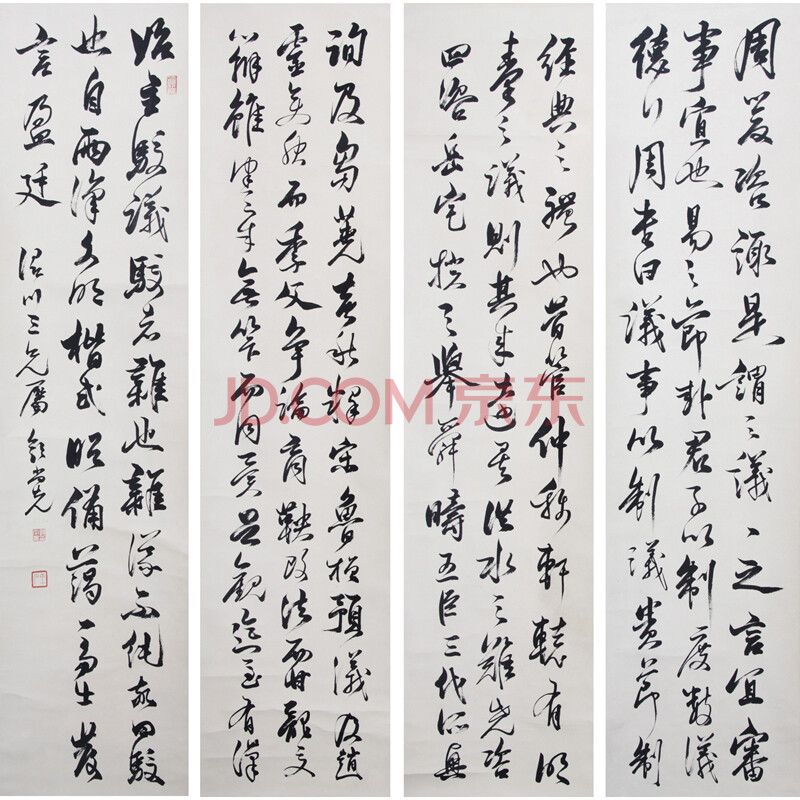 周爰咨諏是謂之議〻之言宜審
事宜也易之節卦君子以制度數議
德行周書曰議事以制議貴節制
經典之體也昔管仲稱軒轅有明
臺之議則其來遠矣洪水之難堯咨
四岳宅揆之舉舜疇五臣三代所興
詢及芻蕘春秋釋宋魯桓預議及趙
靈胡服而季父爭論商鞅改法而甘龍交
辨雖憲章無筭而同異足觀迄至有漢
始立駮議駮者雜也雜議不純故曰駮
也自兩漢文明楷式昭備藹〻多士發
言盈廷 川三兄屬
JD.COM 京东